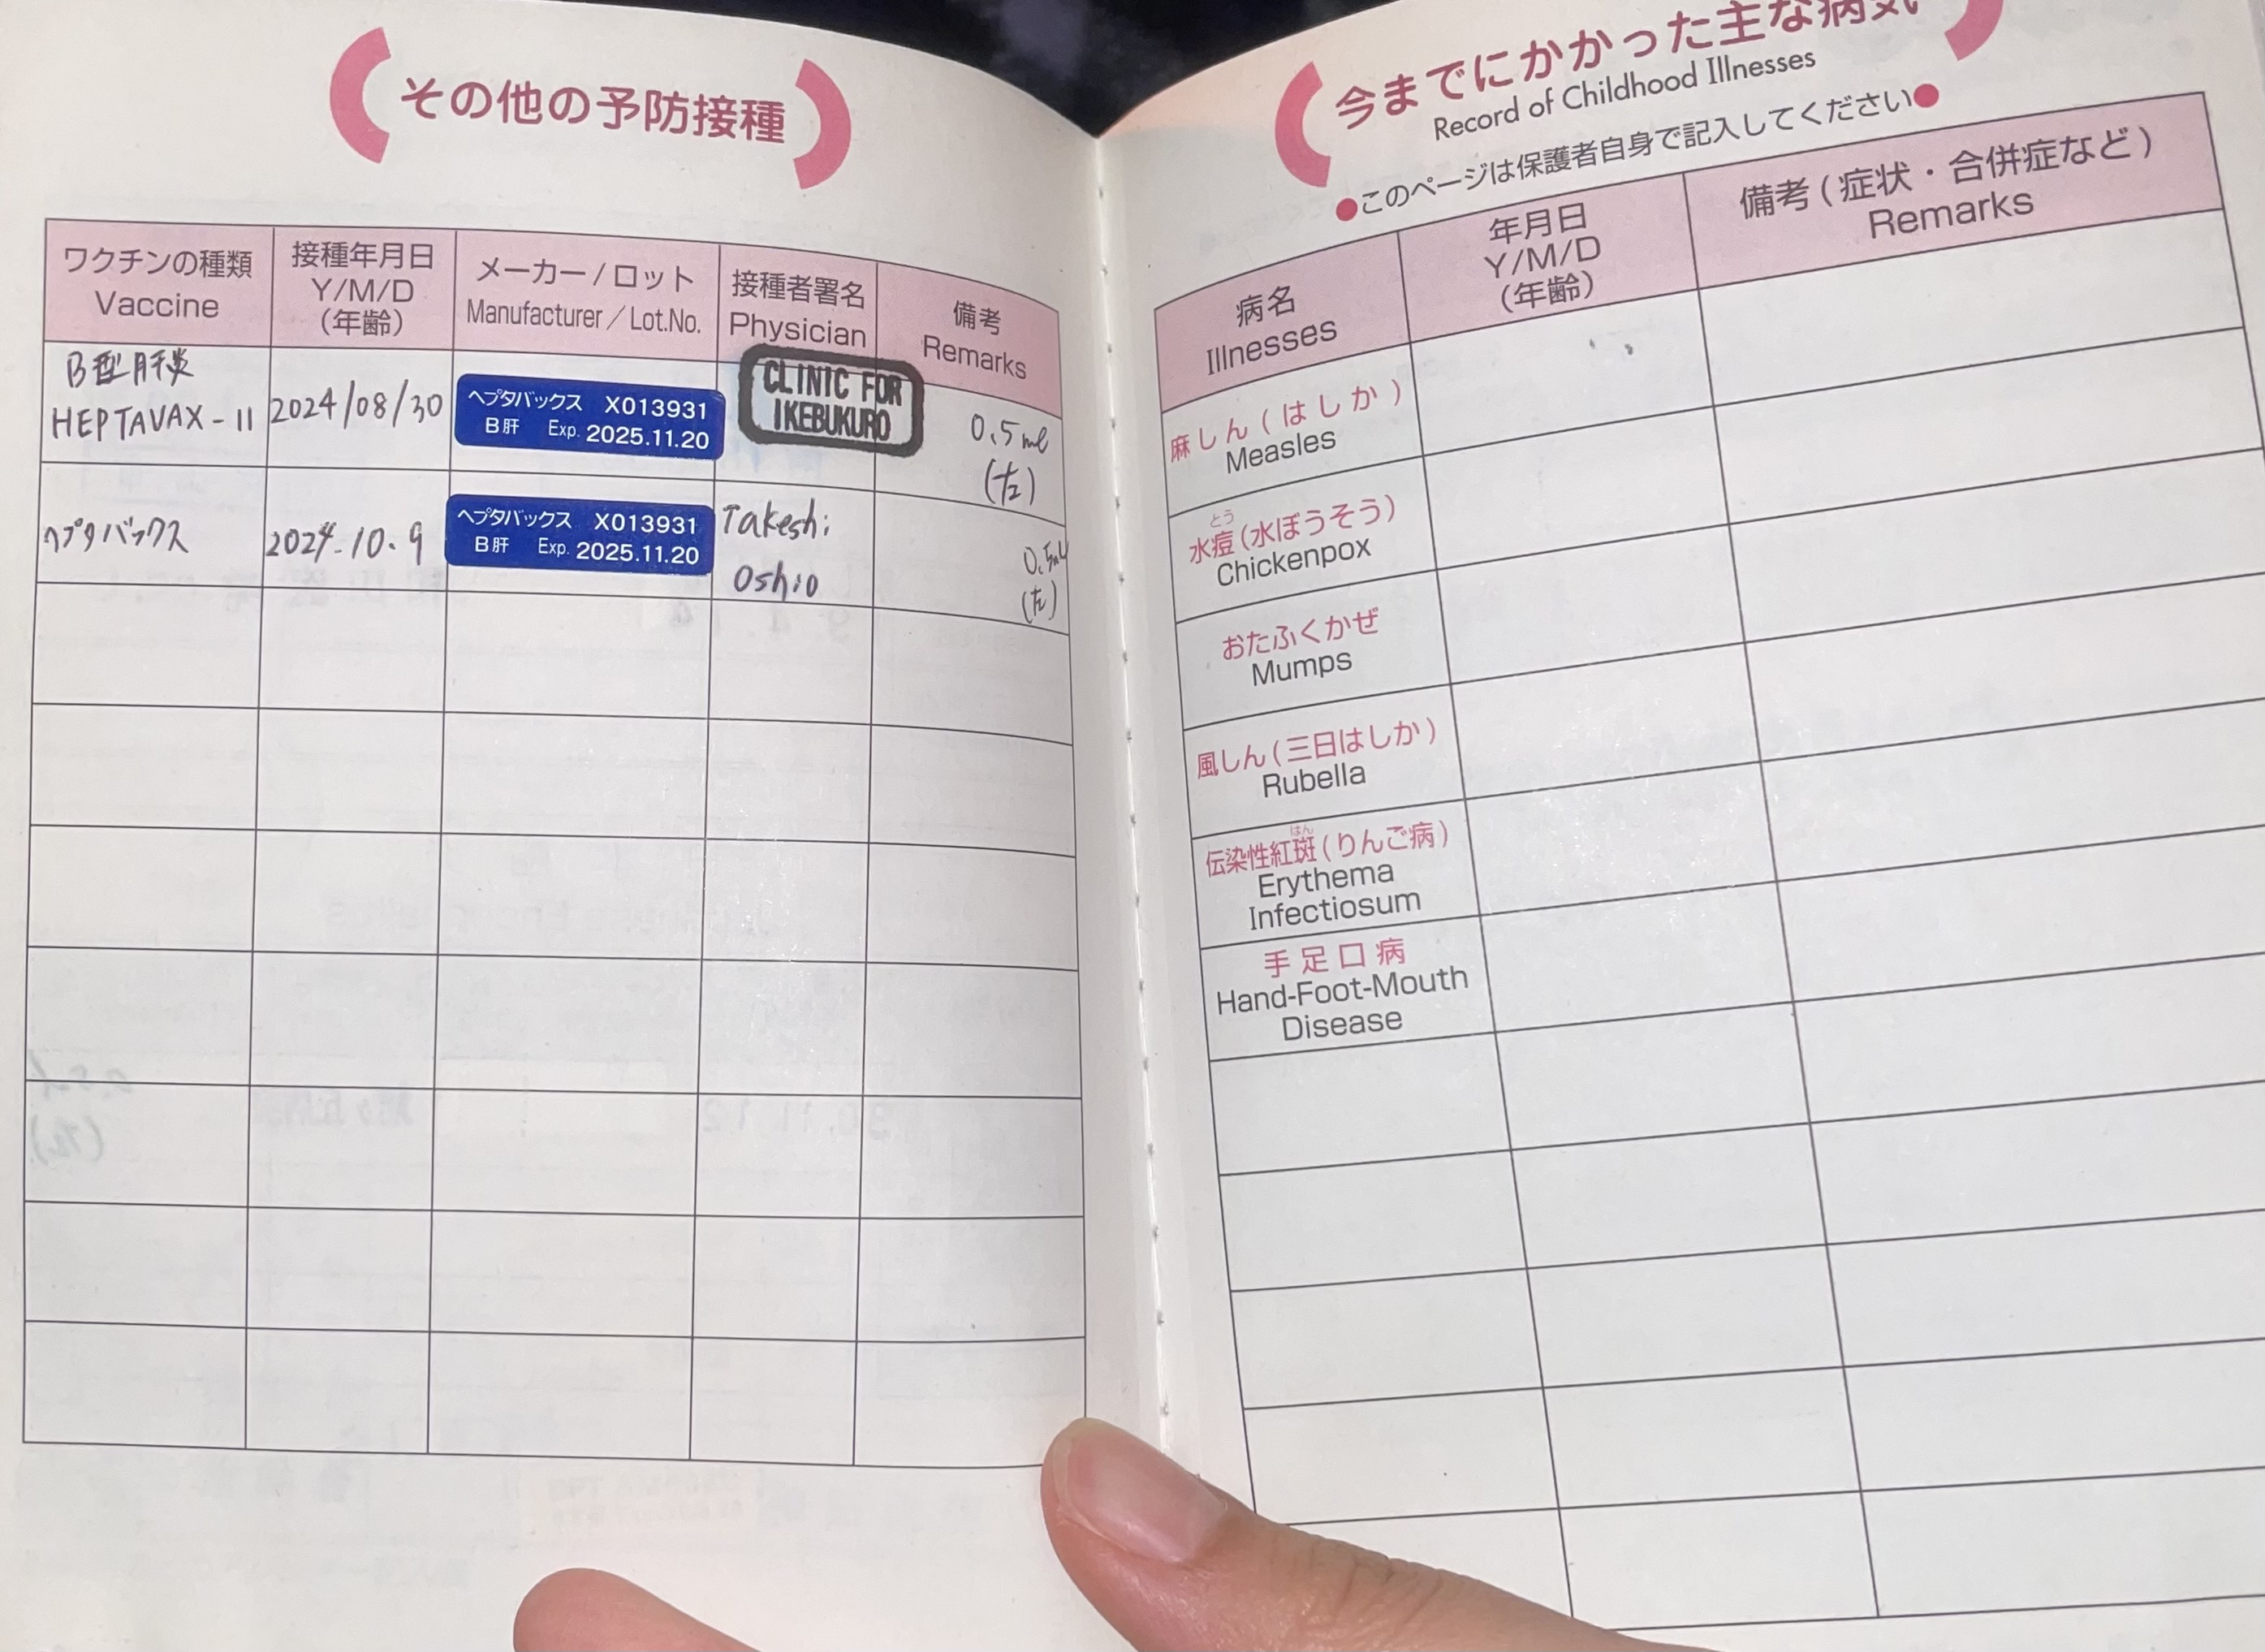 その他の予防接種
ワクチンの種類
Vaccine
接種年月日
Y/M/D
(年齢)
メーカー/ロット
Manufacturer/Lot.No.
接種者署名
Physician
備考
Remarks
B型肝炎
HEPTAVAX-II
2024/08/30
ヘプタバックス X013931
B肝 Exp. 2025.11.20
CLINIC FOR
IKEBUKURO
0.5ml
(左)
ヘプタバックス
2024.10.9
ヘプタバックス X013931
B肝 Exp. 2025.11.20
Takeshi
Oshio
0.5ml
(左)
今までにかかった主な病気
Record of Childhood Illnesses
●このページは保護者自身で記入してください●
病名
Illnesses
年月日
Y/M/D
(年齢)
備考(症状・合併症など)
Remarks
麻しん(はしか)
Measles
とう
水痘(水ぼうそう)
Chickenpox
おたふくかぜ
Mumps
風しん(三日はしか)
Rubella
はん
伝染性紅斑(りんご病)
Erythema
Infectiosum
手足口病
Hand-Foot-Mouth
Disease